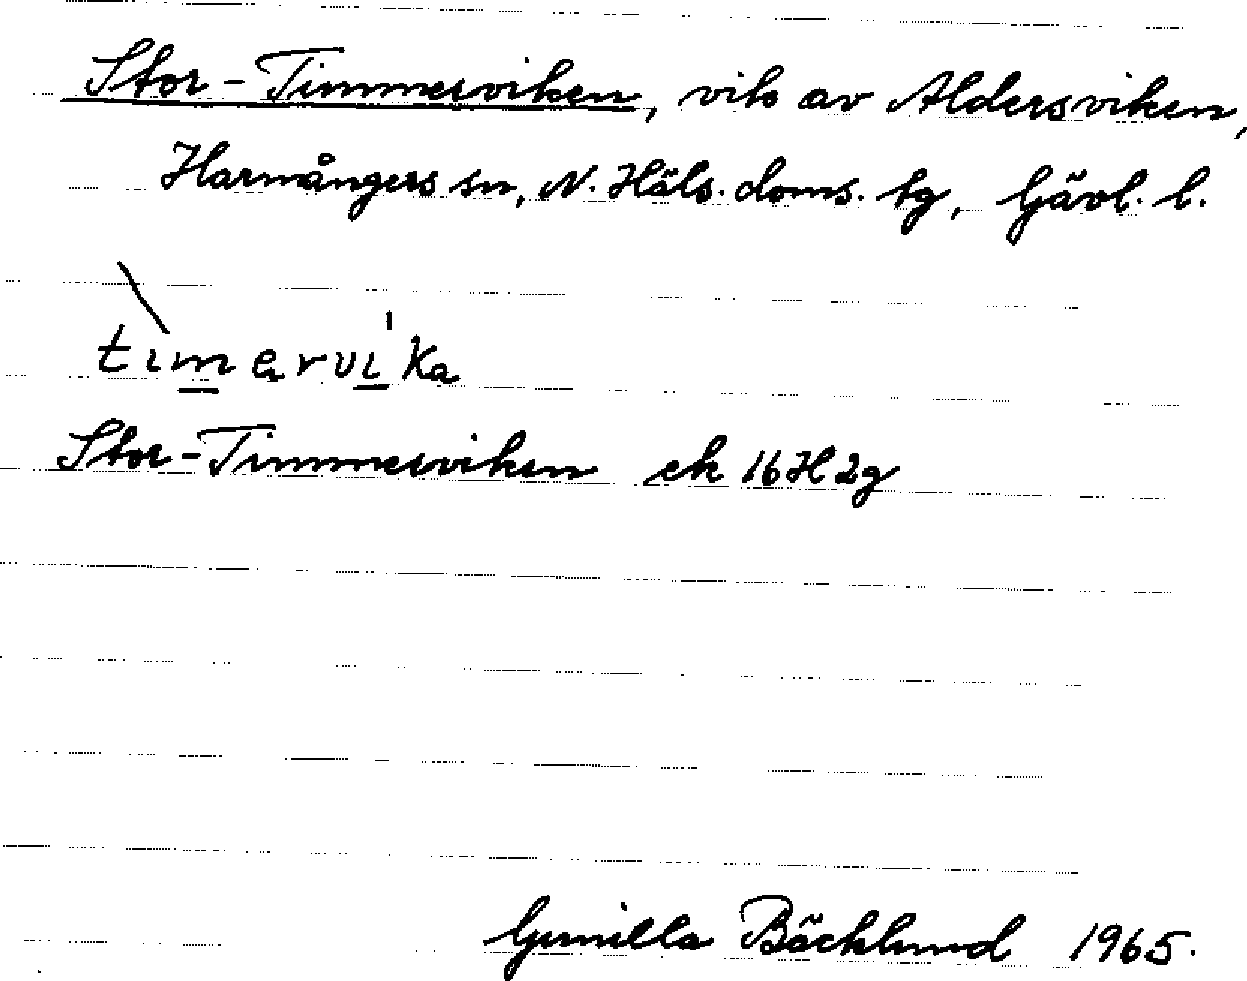 Stor-Timmerviken, vik av Aldersviken,
Harmångers sn, N. Häls. doms. tg, Gävl. l.
tìmervi̍ka
Stor-Timmerviken ek 16H2g
Gunilla Bäcklund 1965.